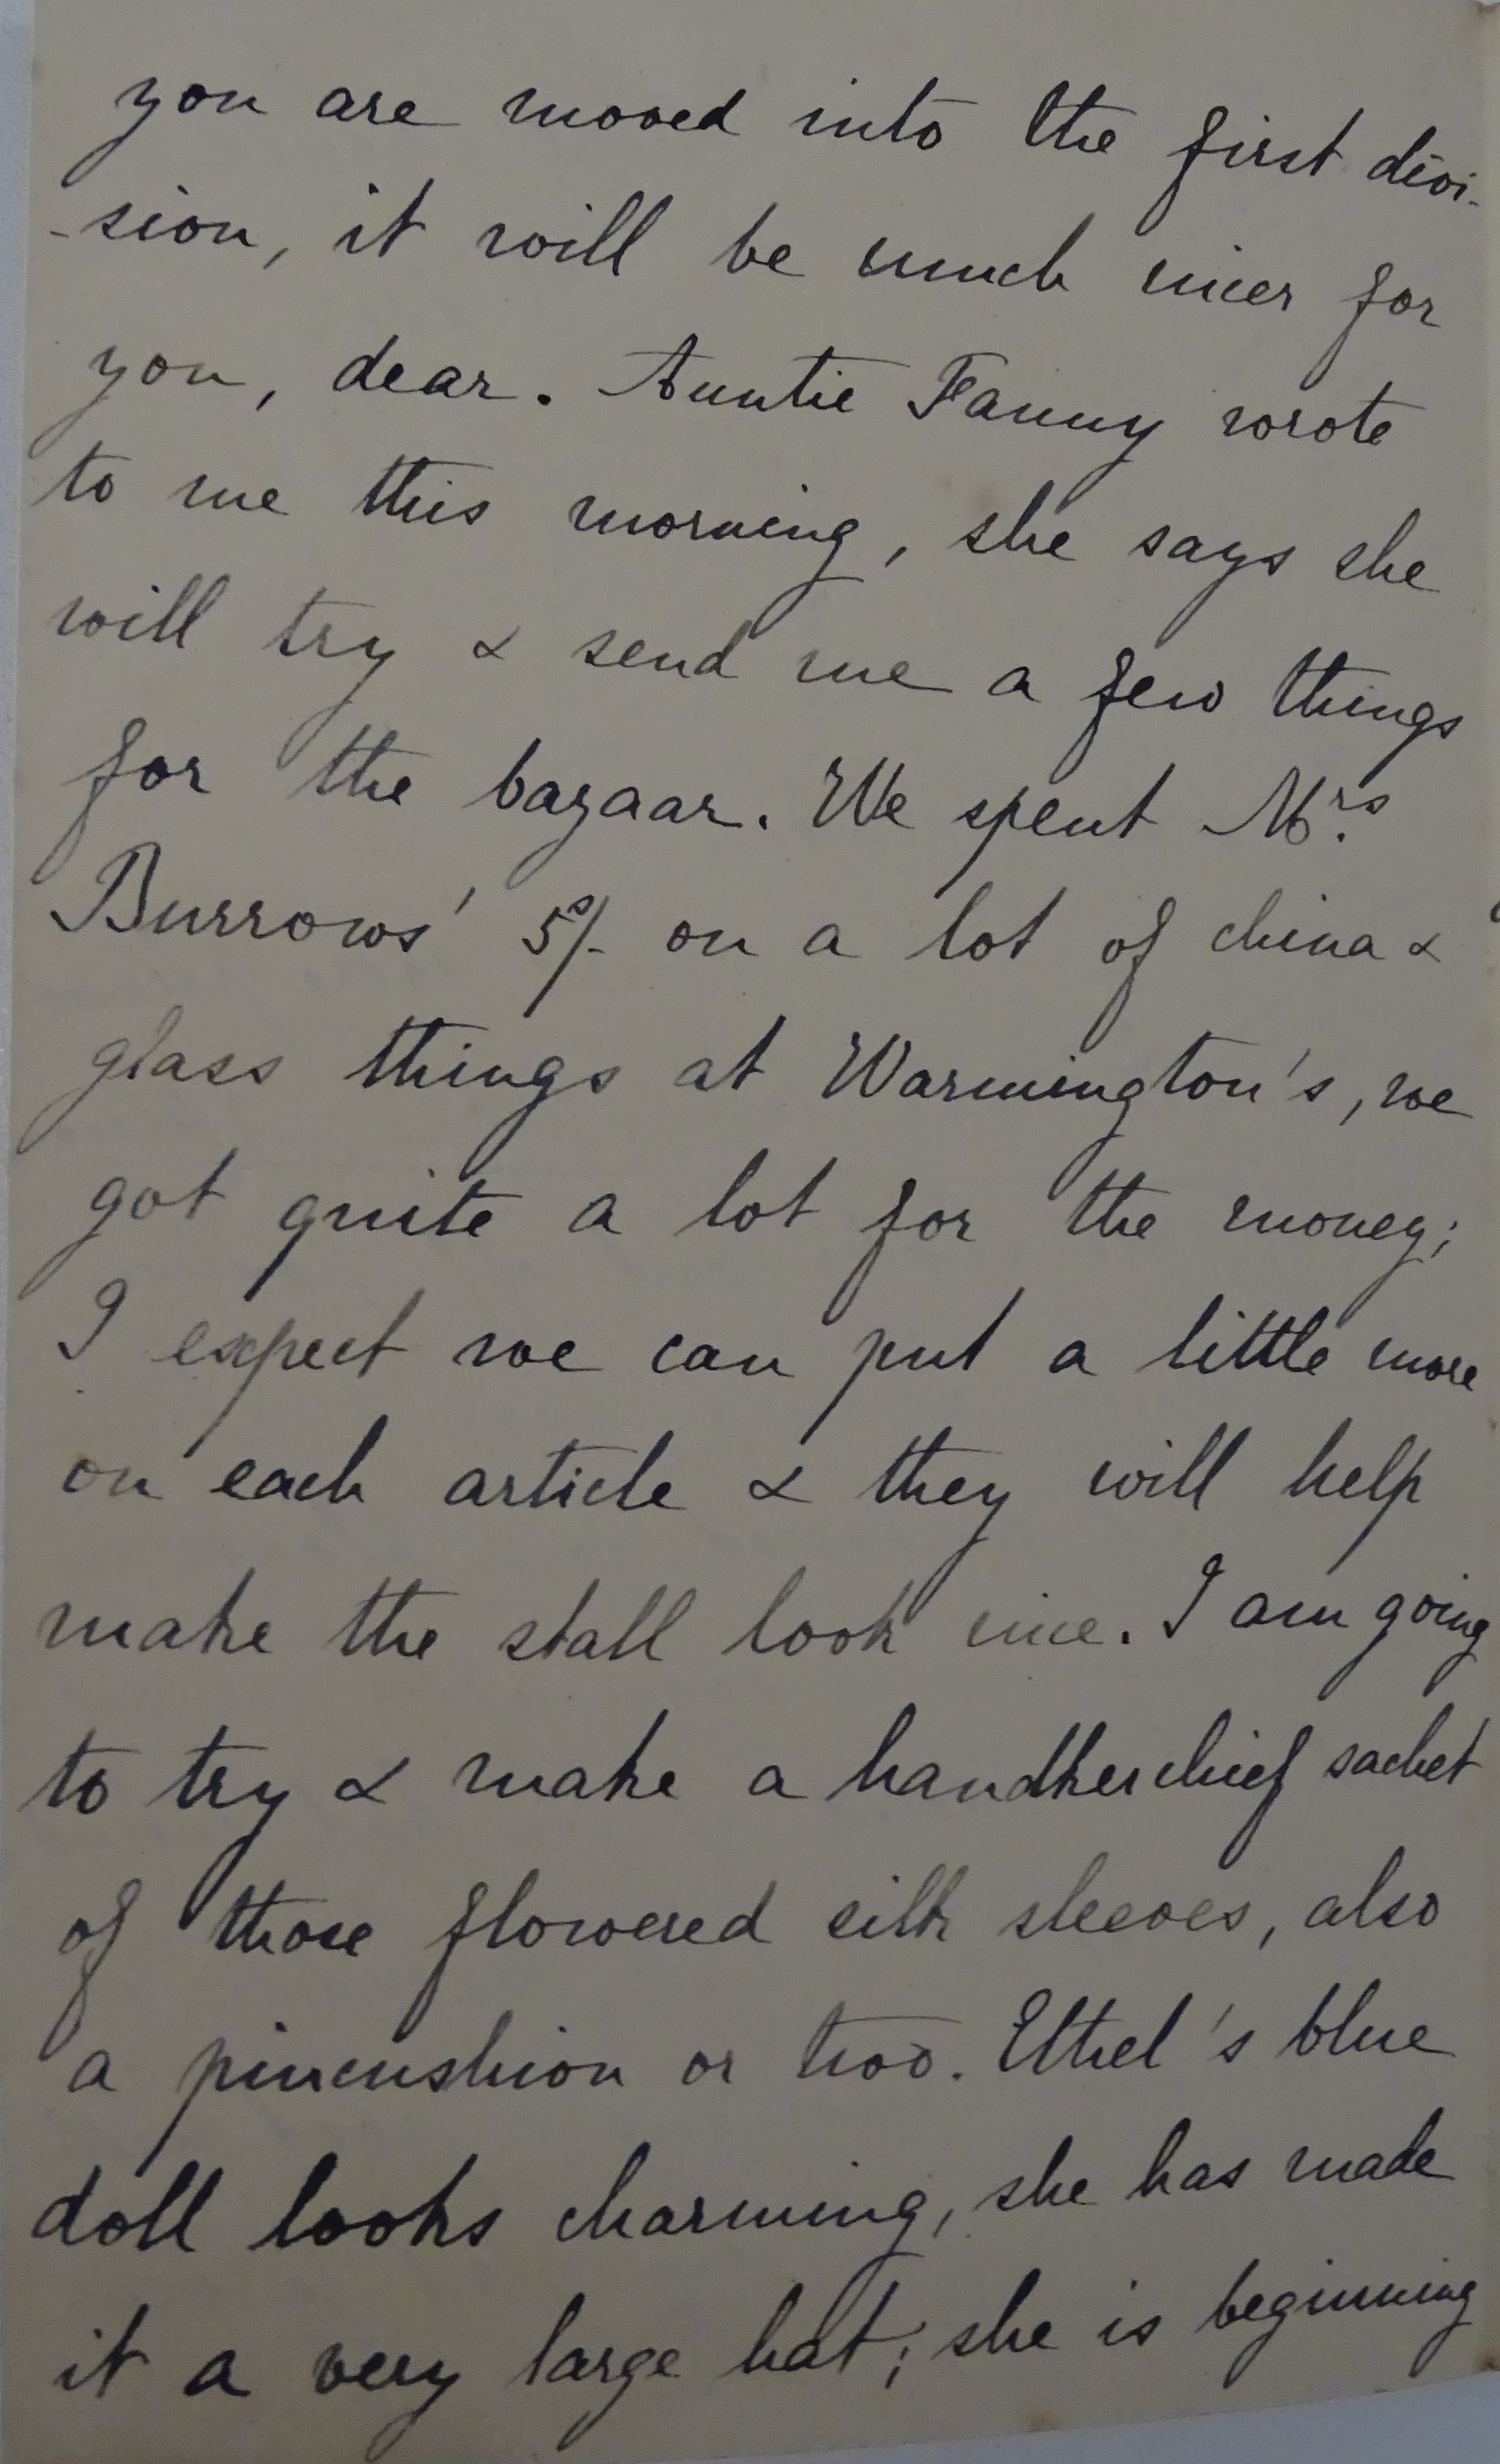 you are moved into the first divi-
-sion, it will be much nicer for
you, dear. Auntie Fanny wrote
to me this morning, she says she
will try & send me a few things
for the bazaar. We spent Mrs.
Burrows' 5s/- on a lot of china &
glass things at Warmington's, we
got quite a lot for the money;
I expect we can put a little more
on each article & they will help
make the stall look nice. I am going
to try & make a handkerchief sachet
of those flowered silk sleeves, also
a pincushion or two. Ethel's blue
doll looks charming, she has made
it a very large hat; she is beginning